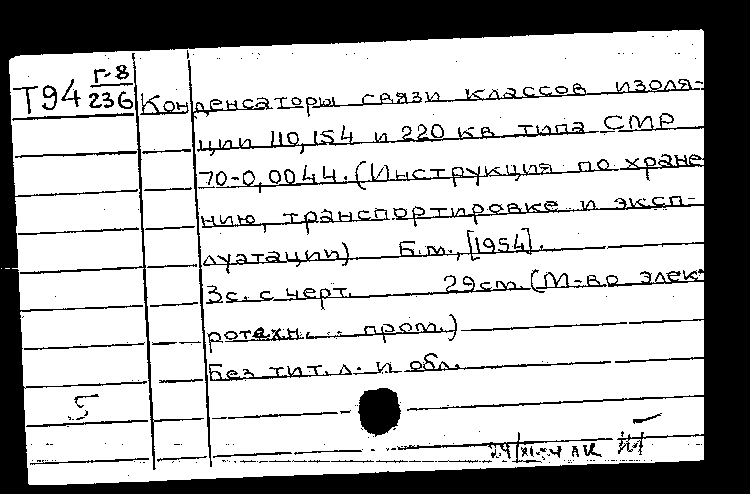 Т94 Г-8
236
Конденсаторы связи классов изоля-
ции 110,154 и 220 кв типа СМР
70-0,0044. (Инструкция по хране
нию, транспортировке и эксп-
луатации) Б.м., [1954].
3с. с черт. 29см. (М-во элек
ротехн. пром.)
Без тит. л. и обл.
5